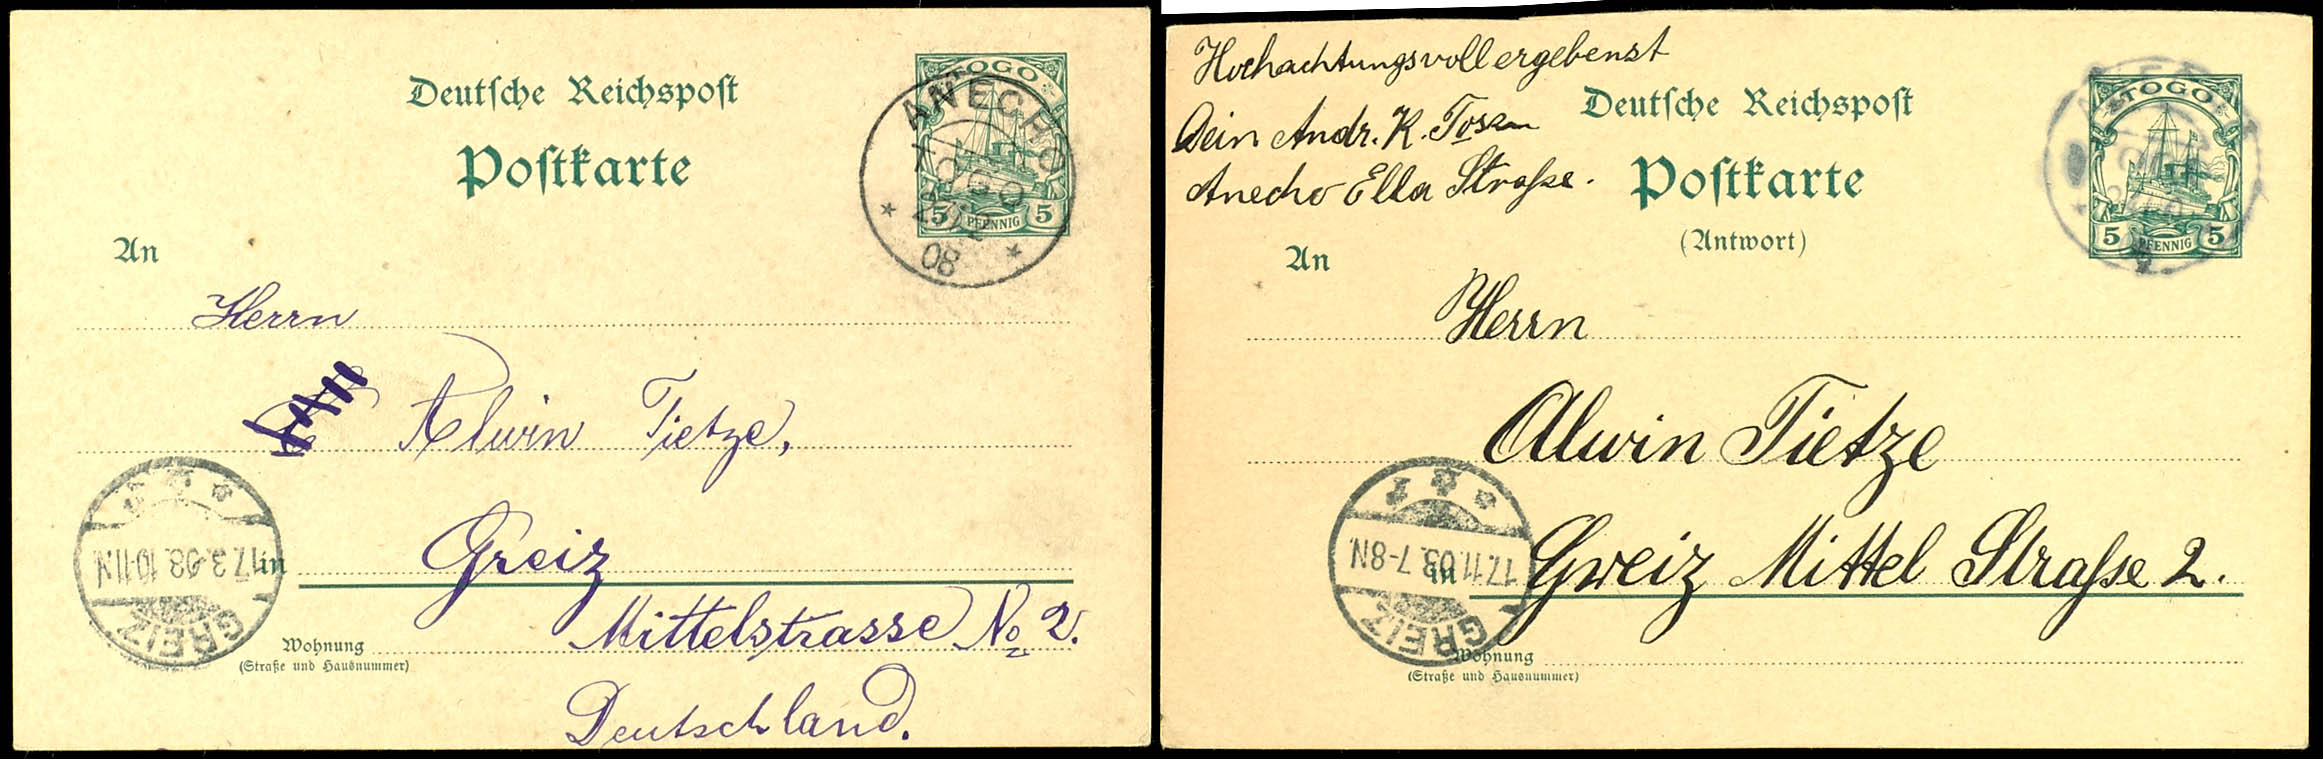 Deutsche Reichspost
Postkarte
TOGO
5 PFENNIG 5
ANECHO
TOGO
08
An
Herrn
Alwin Tietze,
in Greiz
Mittelstrasse No 2.
Wohnung
(Straße und Hausnummer)
Deutschland.
GREIZ
17.3.08. 10-11.N
Hochachtungsvoll ergebenst
Dein Andr. K.
Anecho Ella Straße.
Deutsche Reichspost
Postkarte
(Antwort)
TOGO
5 PFENNIG 5
An
Herrn
Alwin Tietze
in Greiz Mittel Straße 2.
Wohnung
(Straße und Hausnummer)
GREIZ
17.11.03. 7-8N.